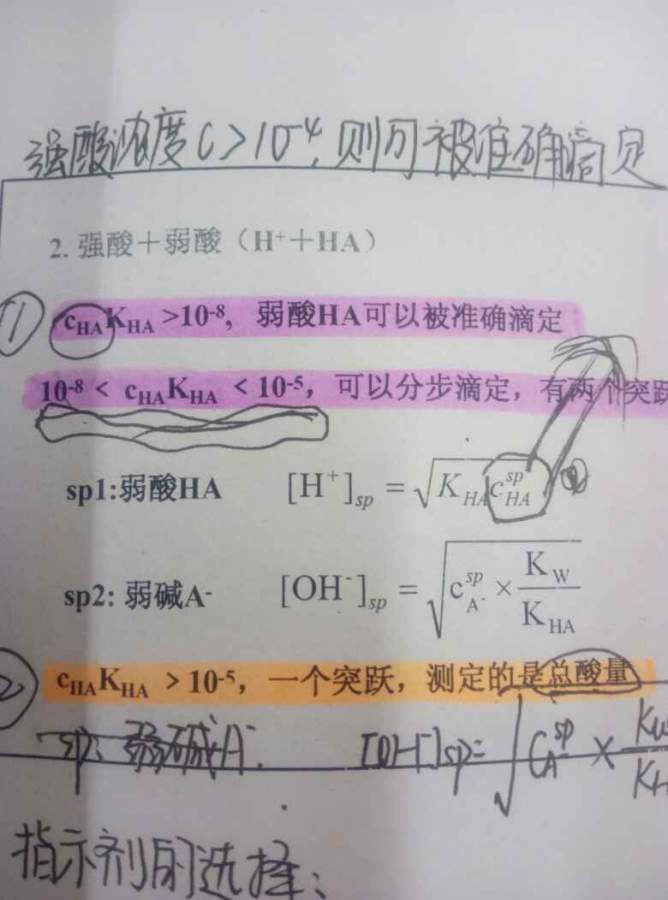 强酸浓度C>10⁻⁴,则可被准确滴定
2. 强酸＋弱酸（H⁺＋HA）
① c_HA K_HA >10⁻⁸, 弱酸HA可以被准确滴定
10⁻⁸ < c_HA K_HA < 10⁻⁵，可以分步滴定，有两个突跃
sp1:弱酸HA [H⁺]_sp = √(K_HA c_HA^sp) ②
sp2: 弱碱A⁻ [OH⁻]_sp = √(c_A⁻^sp × K_W/K_HA)
② c_HA K_HA > 10⁻⁵，一个突跃，测定的是总酸量
sp: 弱碱A⁻. [OH⁻]sp= √(C_A⁻^sp × Kw/KH
指示剂的选择: